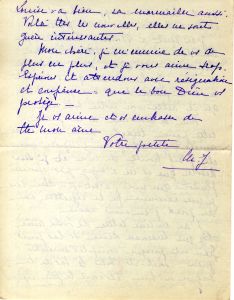 Louise va bien, sa marmaille aussi.
Voilà ttes les nouvelles, elles ne sont
guère intéressantes.
Mon chéri, je m'ennuie de vs de
plus en plus, et je vous aime trop.
Espérons et attendons avec résignation
et confiance. que le bon Dieu vs
protège —
Je vs aime et vs embrasse de
tte mon âme
Votre petite
M. J